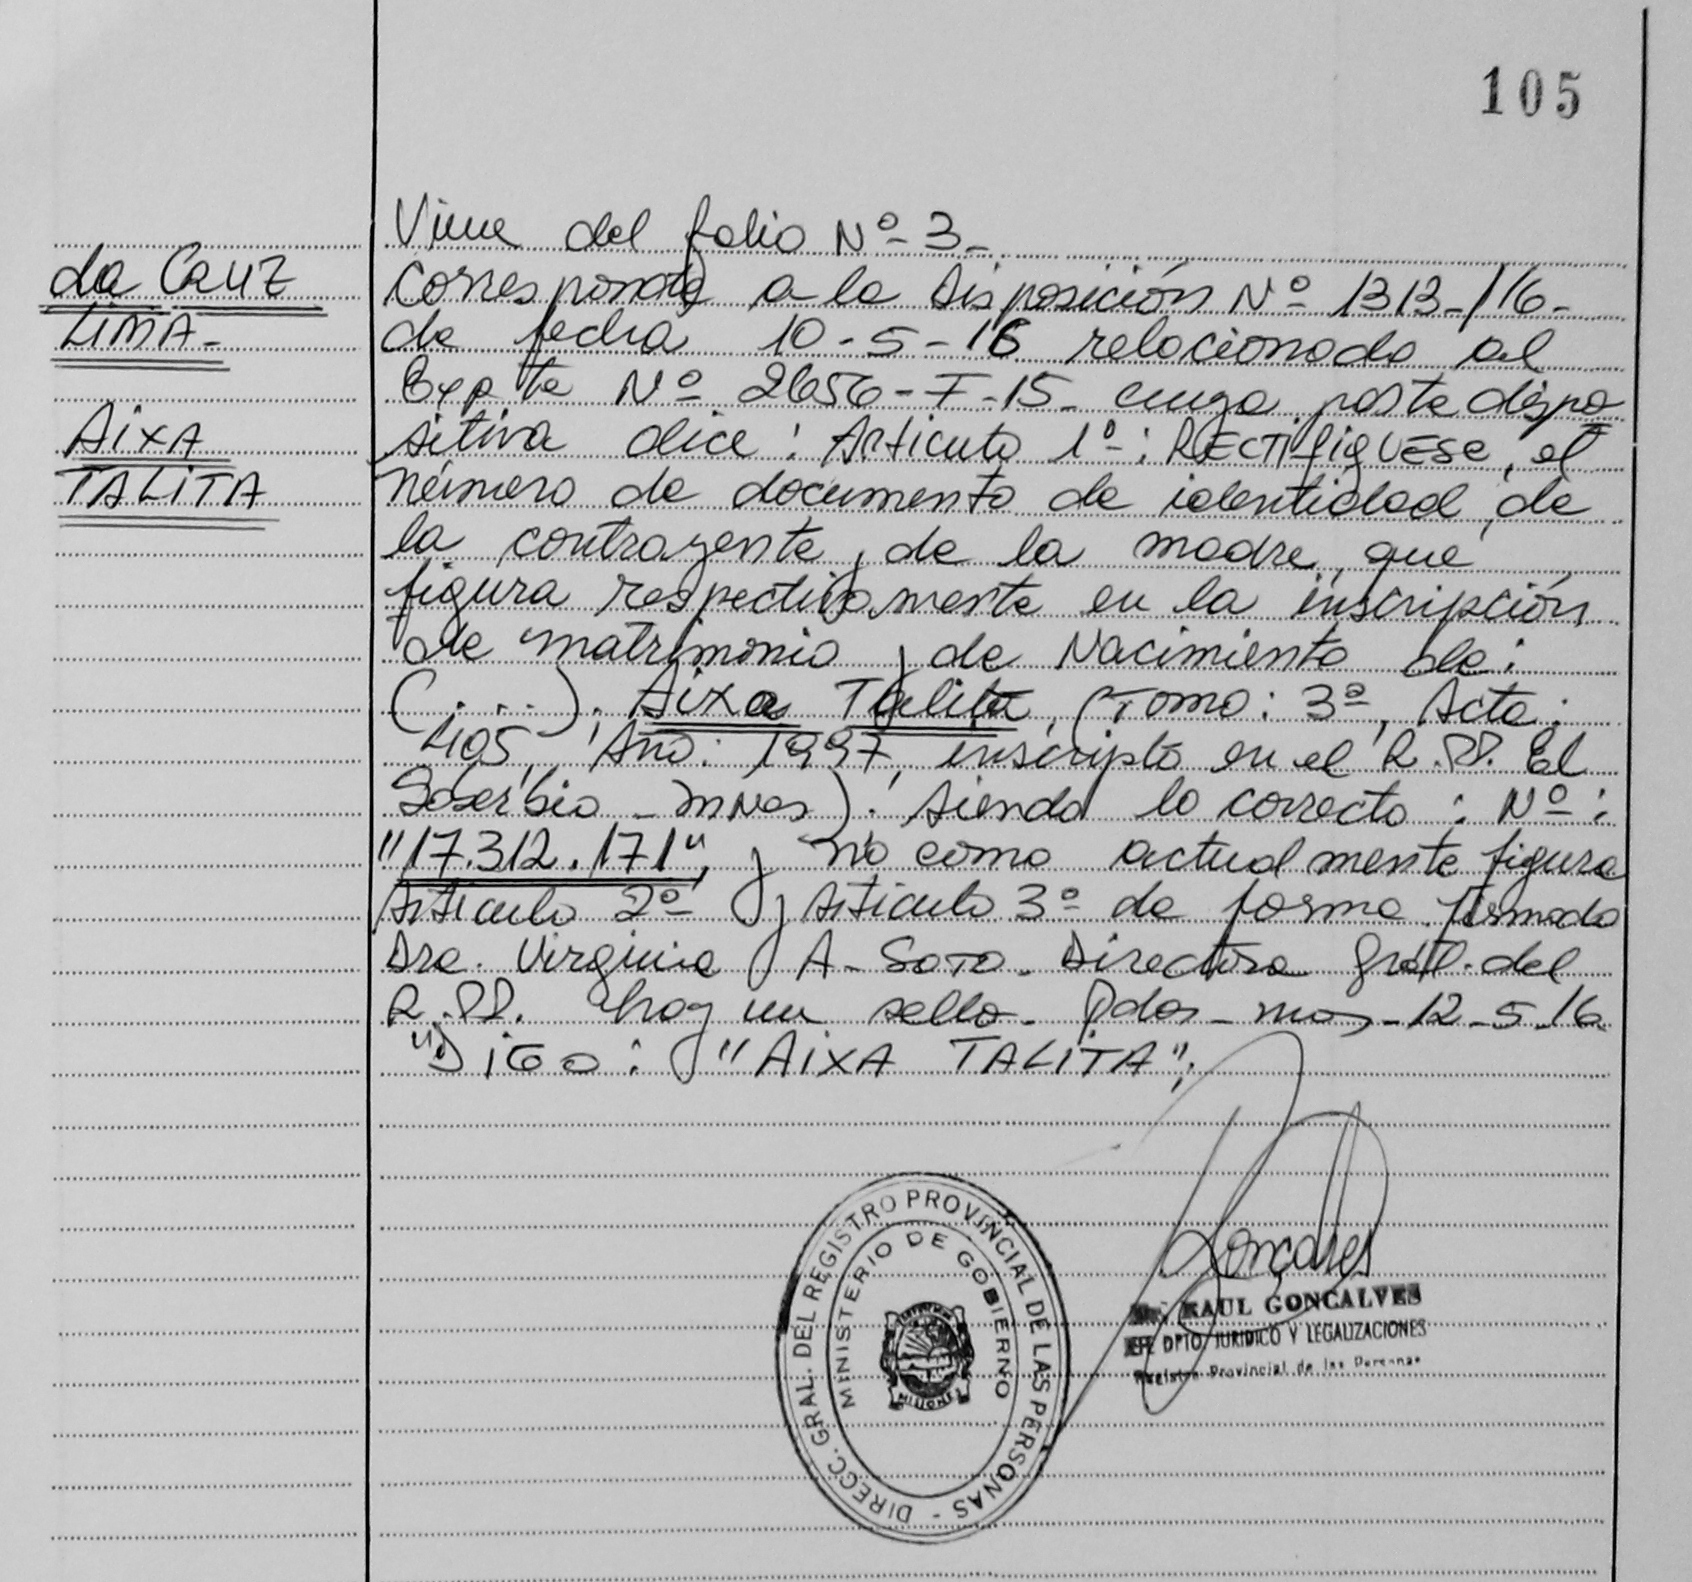 105
da Cruz
LIMA-
AixA
TALiTA
Viene del folio Nº 3-
Corresponde a la Disposición Nº 1313-/16-
de fecha 10-5-16 relacionado al
Expte Nº 2656-F-15- cuya parte dispo
sitiva dice: Artículo 1º: RECTIFIQUESE, el
número de documento de identidad de
la contrayente y de la madre, que
figura respectivamente en la inscripción
de matrimonio y de Nacimiento de:
(....), Aixa Talita, (Tomo: 3º, Acta:
405, Año: 1997, inscripto en el R.PP. El
Soberbio - Mnes). Siendo lo correcto: Nº:
"17.312.171", y no como actualmente figura
Artículo 2º y Artículo 3º de forma firmado
Dra. Virginia A- Soto- Directora Gral. del
R.PP. hay un sello- Pdas- Mnes-12-5-16
"DiGo: "AiXA TALiTA";
DIRECC. GRAL. DEL REGISTRO PROVINCIAL DE LAS PERSONAS -
MINISTERIO DE GOBIERNO
MISIONES
Gonçalves
RAUL GONCALVES
DPTO. JURIDICO Y LEGALIZACIONES
Registro Provincial de las Personas